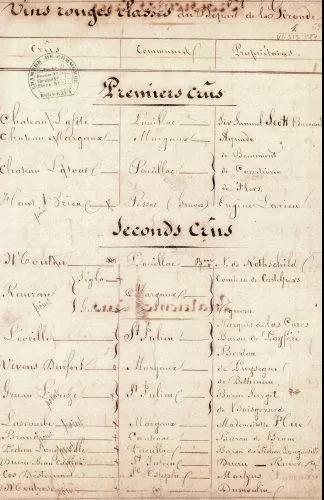 Vins rouges classés du Départ. de la Gironde
Crûs Communes Propriétaires
CHAMBRE DE COMMERCE BORDEAUX
Premiers Crûs
Chateau Lafite Pauillac Sir Samuel Scott
Chateau Margaux Margaux Aguado
de Beaumont
Chateau Latour Pauillac de Courtivron
de Flers
Haut Brion Pessac (Graves) Eugène Larrieu
Seconds Crûs
Mouton Pauillac Bon N. de Rothschild
Rauzan Ségla Comtesse de Castelpers
Margaux
Viguerie
Marquis de las Cases
Léoville St Julien Baron de Poyféré
Barton
Vivens Durfort Margaux de Puységur
de Béthman
Gruau Laroze St Julien Baron Sarget
de Boisgerard
Lascombe Margaux Mademoiselle Hue
Brane Cantenac Baron de Brane
Pichon Longueville Pauillac Baron de Pichon Longueville
Ducru Beau Caillou St Julien Ducru Ravez
Cos Destournel St Estèphe Martyns
Montrose Dumoulin